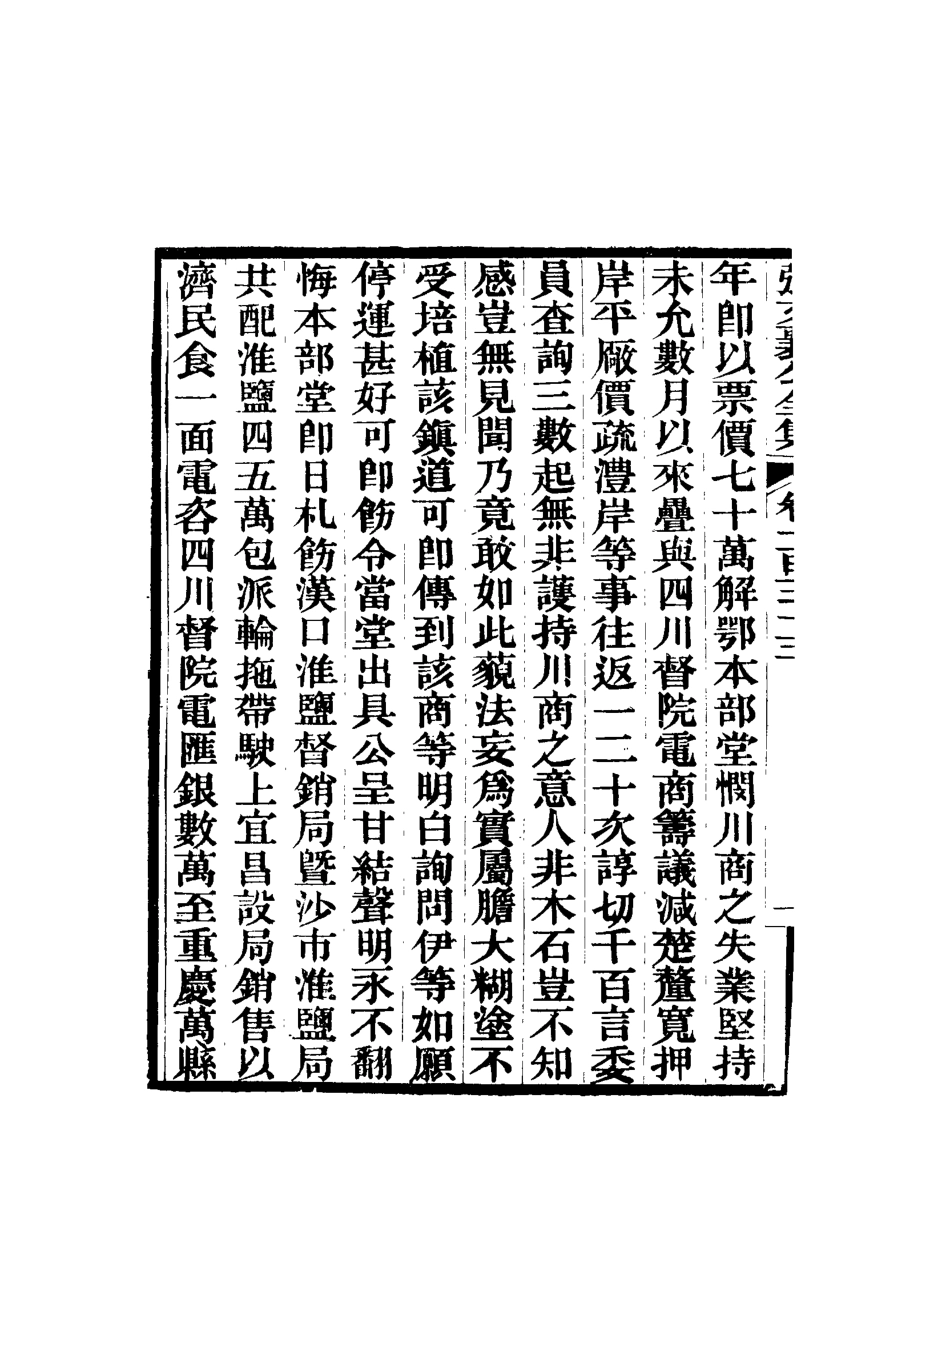 年卽以票價七十萬解鄂本部堂憫川商之失業堅持
未允數月以來疊與四川督院電商籌議減楚釐寬押
岸平厰價疏澧岸等事往返一二十次諄切千百言委
員查詢三數起無非護持川商之意人非木石豈不知
感豈無見聞乃竟敢如此藐法妄爲實屬膽大糊塗不
受培植該鎮道可卽傳到該商等明白詢問伊等如願
停運甚好可卽飭令當堂出具公呈甘結聲明永不翻
悔本部堂卽日札飭漢口淮鹽督銷局暨沙市淮鹽局
共配淮鹽四五萬包派輪拖帶駛上宜昌設局銷售以
濟民食一面電咨四川督院電匯銀數萬至重慶萬縣